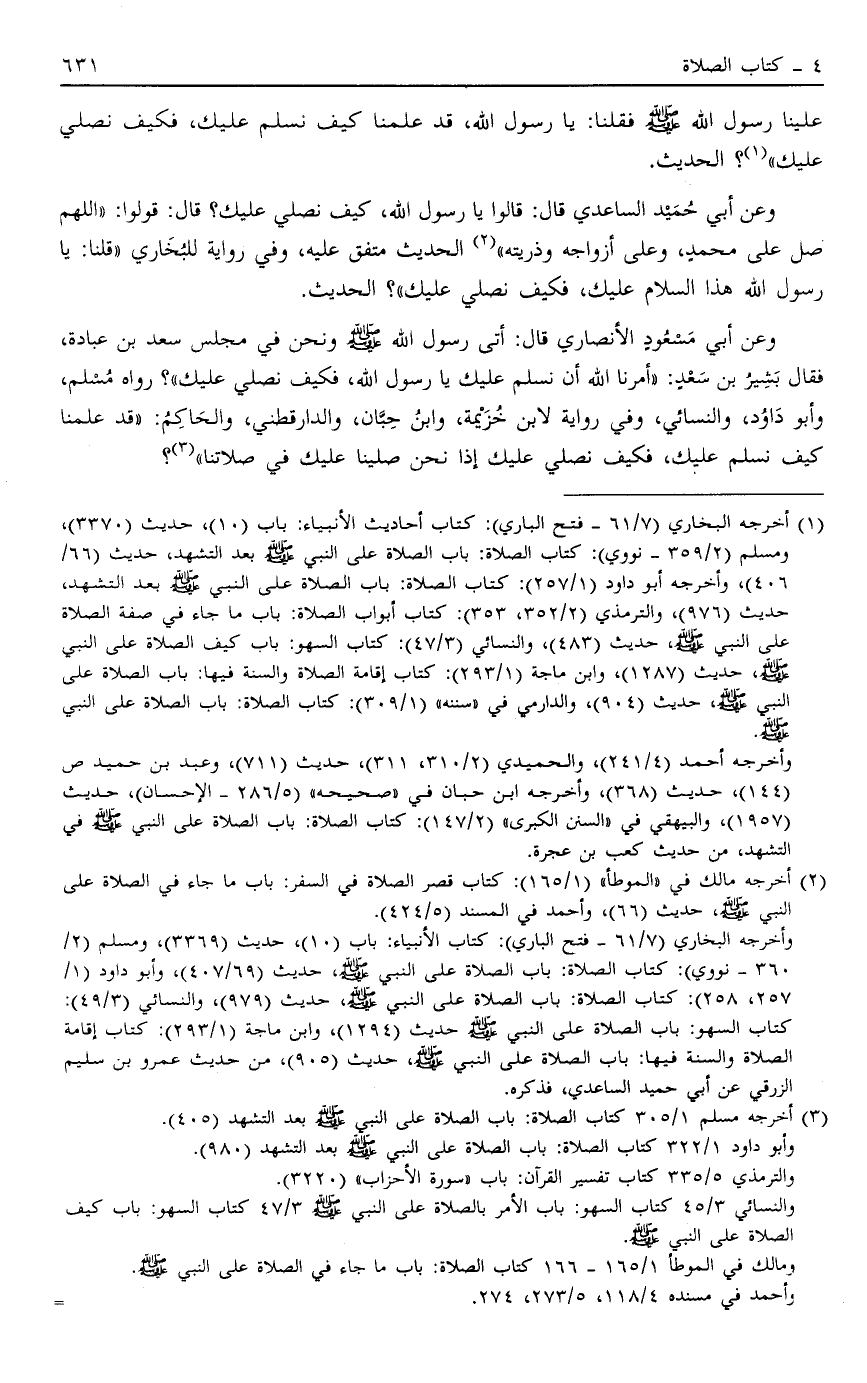 ٤ ـ كتاب الصلاة ٦٣١
علينا رسول الله ﷺ فقلنا: يا رسول الله، قد علمنا كيف نسلم عليك، فكيف نصلي
عليك»(١)؟ الحديث.
وعن أبي حُمَيْد الساعدي قال: قالوا يا رسول الله، كيف نصلي عليك؟ قال: قولوا: «اللهم
صل على محمدٍ، وعلى أزواجه وذريته»(٢) الحديث متفق عليه، وفي رواية للبُخَاري «قلنا: يا
رسول الله هذا السلام عليك، فكيف نصلي عليك»؟ الحديث.
وعن أبي مَسْعُودٍ الأنصاري قال: أتى رسول الله ﷺ ونحن في مجلس سعد بن عبادة،
فقال بَشِيرُ بن سَعْدٍ: «أمرنا الله أن نسلم عليك يا رسول الله، فكيف نصلي عليك»؟ رواه مُسْلم،
وأبو دَاوُد، والنسائي، وفي رواية لابن خُزَيْمة، وابنُ حِبَّان، والدارقطني، والحَاكِمُ: «قد علمنا
كيف نسلم عليك، فكيف نصلي عليك إذا نحن صلينا عليك في صلاتنا»(٣)؟
(١) أخرجه البخاري (٦١/٧ ـ فتح الباري): كتاب أحاديث الأنبياء: باب (١٠)، حديث (٣٣٧٠)،
ومسلم (٣٥٩/٢ ـ نووي): كتاب الصلاة: باب الصلاة على النبي ﷺ بعد التشهد، حديث (٦٦/
٤٠٦)، وأخرجه أبو داود (٢٥٧/١): كتاب الصلاة: باب الصلاة على النبي ﷺ بعد التشهد،
حديث (٩٧٦)، والترمذي (٣٥٢/٢، ٣٥٣): كتاب أبواب الصلاة: باب ما جاء في صفة الصلاة
على النبي ﷺ، حديث (٤٨٣)، والنسائي (٤٧/٣): كتاب السهو: باب كيف الصلاة على النبي
ﷺ، حديث (١٢٨٧)، وابن ماجة (٢٩٣/١): كتاب إقامة الصلاة والسنة فيها: باب الصلاة على
النبي ﷺ، حديث (٩٠٤)، والدارمي في «سننه» (٣٠٩/١): كتاب الصلاة: باب الصلاة على النبي
ﷺ.
وأخرجه أحمد (٢٤١/٤)، والحميدي (٣١٠/٢، ٣١١)، حديث (٧١١)، وعبد بن حميد ص
(١٤٤)، حديث (٣٦٨)، وأخرجه ابن حبان في «صحيحه» (٢٨٦/٥ ـ الإحسان)، حديث
(١٩٥٧)، والبيهقي في «السنن الكبرى» (١٤٧/٢): كتاب الصلاة: باب الصلاة على النبي ﷺ في
التشهد، من حديث كعب بن عجرة.
(٢) أخرجه مالك في «الموطأ» (١٦٥/١): كتاب قصر الصلاة في السفر: باب ما جاء في الصلاة على
النبي ﷺ، حديث (٦٦)، وأحمد في المسند (٤٢٤/٥).
وأخرجه البخاري (٦١/٧ ـ فتح الباري): كتاب الأنبياء: باب (١٠)، حديث (٣٣٦٩)، ومسلم (٢/
٣٦٠ ـ نووي): كتاب الصلاة: باب الصلاة على النبي ﷺ، حديث (٤٠٧/٦٩)، وأبو داود (١/
٢٥٧، ٢٥٨): كتاب الصلاة: باب الصلاة على النبي ﷺ، حديث (٩٧٩)، والنسائي (٤٩/٣):
كتاب السهو: باب الصلاة على النبي ﷺ حديث (١٢٩٤)، وابن ماجة (٢٩٣/١): كتاب إقامة
الصلاة والسنة فيها: باب الصلاة على النبي ﷺ، حديث (٩٠٥)، من حديث عمرو بن سليم
الزرقي عن أبي حميد الساعدي، فذكره.
(٣) أخرجه مسلم ٣٠٥/١ كتاب الصلاة: باب الصلاة على النبي ﷺ بعد التشهد (٤٠٥).
وأبو داود ٣٢٢/١ كتاب الصلاة: باب الصلاة على النبي ﷺ بعد التشهد (٩٨٠).
والترمذي ٣٣٥/٥ كتاب تفسير القرآن: باب «سورة الأحزاب» (٣٢٢٠).
والنسائي ٤٥/٣ كتاب السهو: باب الأمر بالصلاة على النبي ﷺ ٤٧/٣ كتاب السهو: باب كيف
الصلاة على النبي ﷺ.
ومالك في الموطأ ١٦٥/١ ـ ١٦٦ كتاب الصلاة: باب ما جاء في الصلاة على النبي ﷺ.
وأحمد في مسنده ١١٨/٤، ٢٧٣/٥، ٢٧٤. =